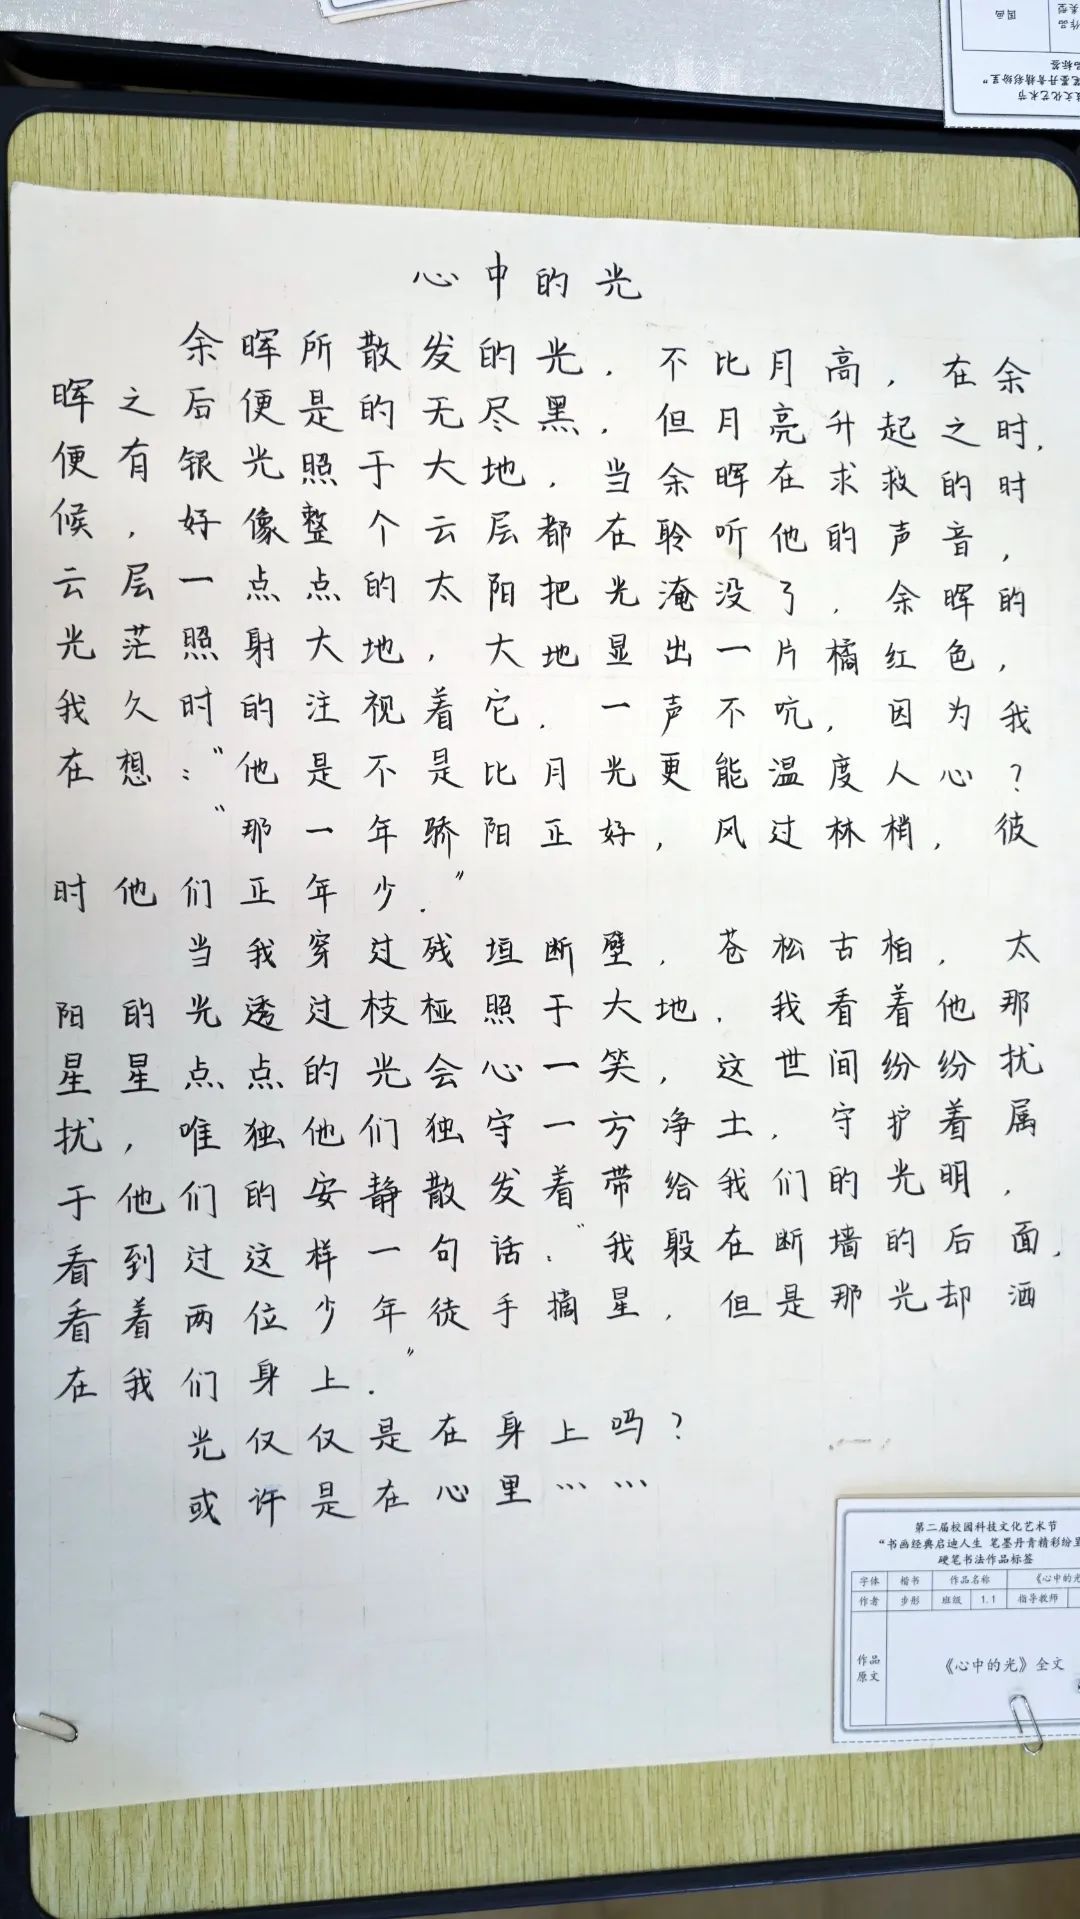 心中的光
余晖所散发的光，不比月高，在余
晖之后便是的无尽黑，但月亮升起之时，
便有银光照于大地，当余晖在求救的时
候，好像整个云层都在聆听他的声音，
云层一点点的太阳把光淹没了，余晖的
光茫照射大地，大地显出一片橘红色，
我久时的注视着它，一声不吭，因为我
在想："他是不是比月光更能温度人心？
"那一年骄阳正好，风过林梢，彼
时他们正年少."
当我穿过残垣断壁，苍松古柏，太
阳的光透过枝桠照于大地，我看着他那
星星点点的光会心一笑，这世间纷纷扰
扰，唯独他们独守一方净土，守护着属
于他们的安静散发着带给我们的光明，
看到过这样一句话："我躲在断墙的后面，
看着两位少年徒手摘星，但是那光却洒
在我们身上."
光仅仅是在身上吗？
或许是在心里……
第二届校园科技文化艺术节
"书画经典启迪人生 笔墨丹青精彩纷呈
硬笔书法作品标签
字体 楷书 作品名称 《心中的光
作者 步彤 班级 1.1 指导教师
作品原文 《心中的光》全文
作品类型 国画
品标签
笔墨丹青精彩纷呈"
技文化艺术节